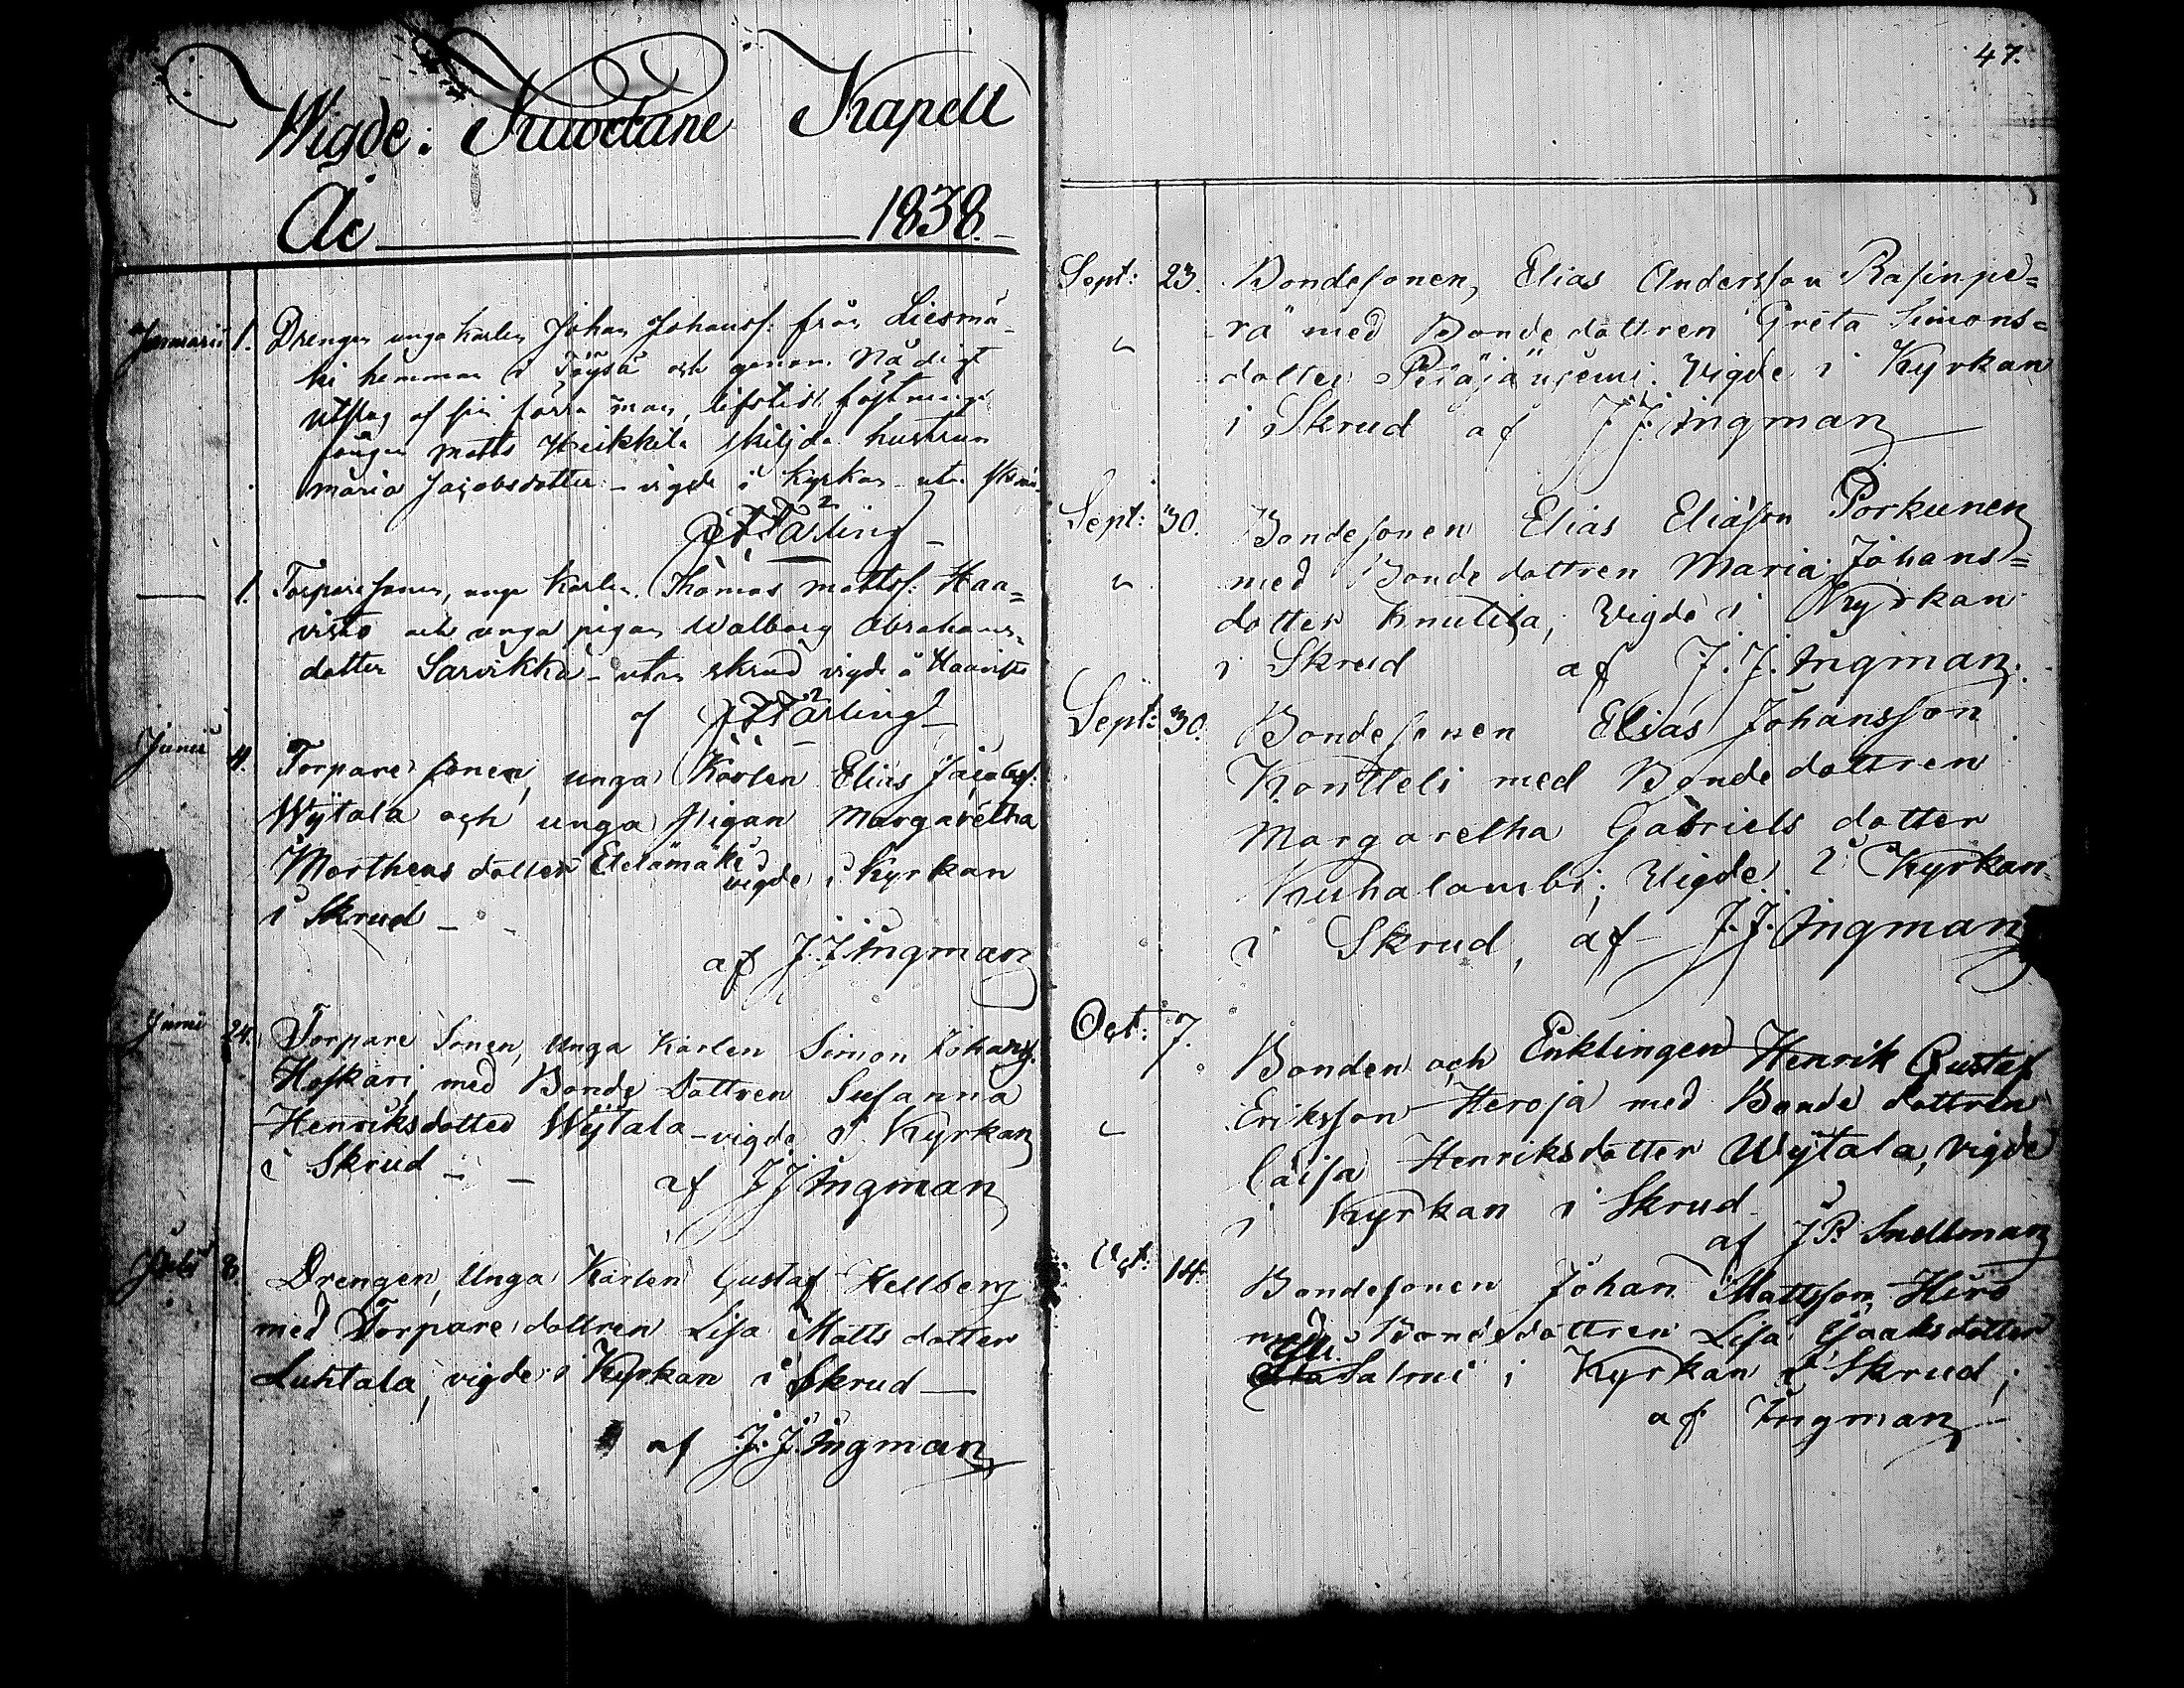 Wigde: Kuortane Kapell
År 1838.
Januarii 1. Drengen unga Karlen Johan Johanss. från Liesmä-
ki hemman i Töysä och genom Nådigt
utslag af sin förra man,
Matts Heikkilä skiljda hustrun
Maria Jacobsdotter - vigde i Kyrkan utan
Färling
1. Torparesonen, unga Karlen Thomas Mattss. Haa=
visto och unga pigan Walborg Abrahams-
dotter Sarvikka - utan skrud vigde å Haavisto
af Färling
Junii 4. Torpare sonen, unga Karlen Elias Jacobss.
Wÿtala och unga pigan Margaretha
Marthens dotter Etelämäki vigde i Kyrkan
i Skrud -
af J.J Ingman
Junii 24. Torpare Sonen, Unga Karlen Simon Johans.
med Bonde Dottren Susanna
Henriksdotter Wÿtala - vigde i Kyrkan
i Skrud - -
af J J Ingman
Julii 8. Drengen, Unga Karlen Gustaf Hellberg
med Torpare dottren Lisa Matts dotter
Luhtala, vigde i Kyrkan i Skrud —
af J. J. Ingman
47.
Sept: 23. Bondesonen, Elias Andersson Rasinpe=
rä med Bonde dottren Greta Simons=
dotter Vigde i Kyrkan
i Skrud af J J. Ingman
Sept: 30. Bondesonen Elias Eliason Porkunen
med Bonde dottren Maria Johans=
dotter Knutila; Vigde i Kyrkan
i Skrud af J. J. Ingman.
Sept: 30. Bondesonen Elias Johansson
Kontteli med Bonde dottren
Margaretha Gabriels dotter
Kuhalambi; Vigde i Kyrkan
i Skrud, af J. J. Ingman
Oct: 7. Bonden och Enklingen Henrik Gustaf
Eriksson Heroja med Bonde dottren
Caisa Henriksdotter Wÿtala, vigde
i Kyrkan i Skrud
af J P. Snellman
Oct: 14. Bondesonen Johan Mattsson Hiro
med Bondedottren Lisa Jaaksdotter
Yli
Salmi i Kyrkan i Skrud;
af Ingman